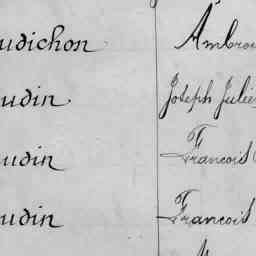 udichon Ambroi
udin Joseph Julie
udin François
udin François